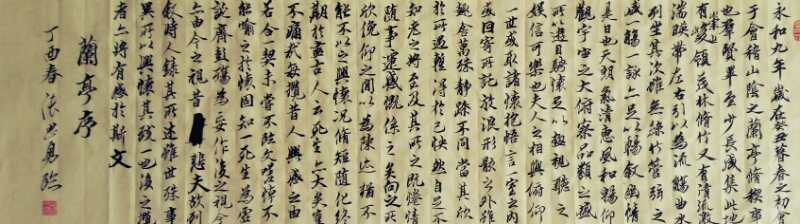 永和九年歲在癸丑暮春之初會
于會稽山陰之蘭亭脩稧事
也羣賢畢至少長咸集此地
崇山
有峻領茂林脩竹又有清流激
湍暎帶左右引以為流觴曲水
列坐其次雖無絲竹管弦之
盛一觴一詠亦足以暢叙幽情
是日也天朗氣清惠風和暢仰
觀宇宙之大俯察品類之盛
所以遊目騁懷足以極視聽之
娛信可樂也夫人之相與俯仰
一世或取諸懷抱悟言一室之內
或因寄所託放浪形骸之外雖
趣舍萬殊靜躁不同當其欣
於所遇蹔得於己快然自足不
知老之將至及其所之既惓情
隨事遷感慨係之矣向之所
欣俛仰之間以為陳迹猶不
能不以之興懷況脩短隨化終
期於盡古人云死生亦大矣豈
不痛哉每攬昔人興感之由
若合一契未嘗不臨文嗟悼不
能喻之於懷固知一死生為虛
誕齊彭殤為妄作後之視今
亦由今之視昔悲夫故列
叙時人錄其所述雖世殊事
異所以興懷其致一也後之攬
者亦將有感於斯文
蘭亭序
丁酉春張恩臨